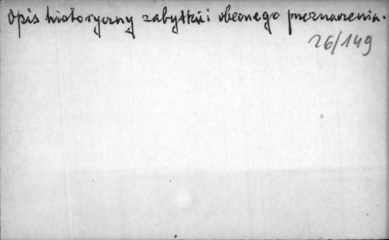 Opis historyczny zabytku i obecnego przeznaczenia.
26/149